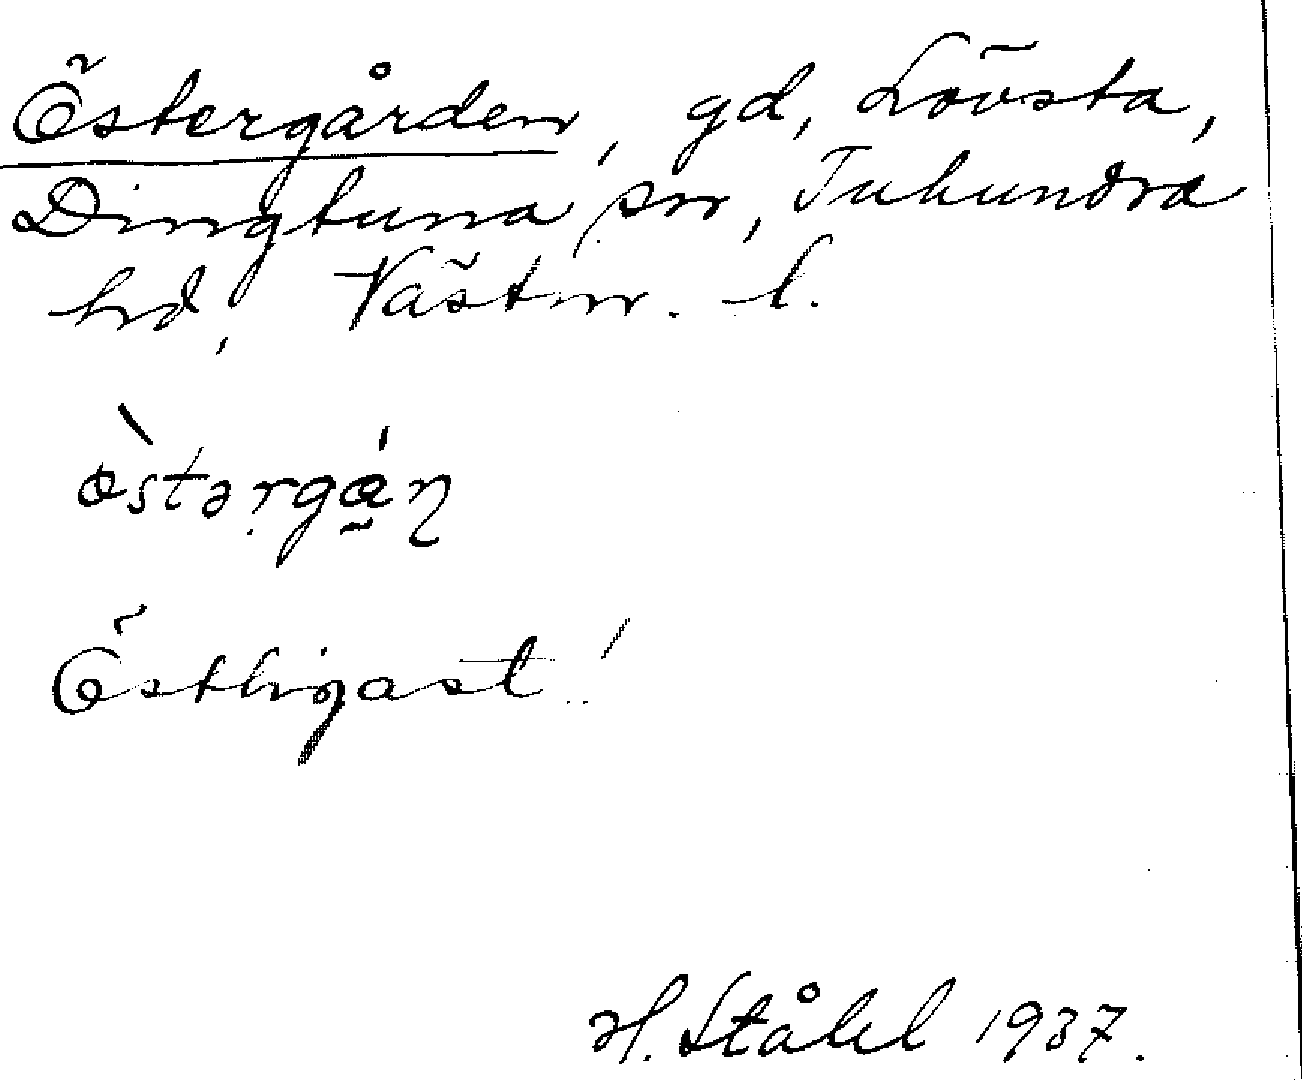 Östergården, gd, Lövsta,
Dingtuna sn, Tuhundra
hd, Västm. l.
östərgǻn
Östligast!
H. Ståhl 1937.